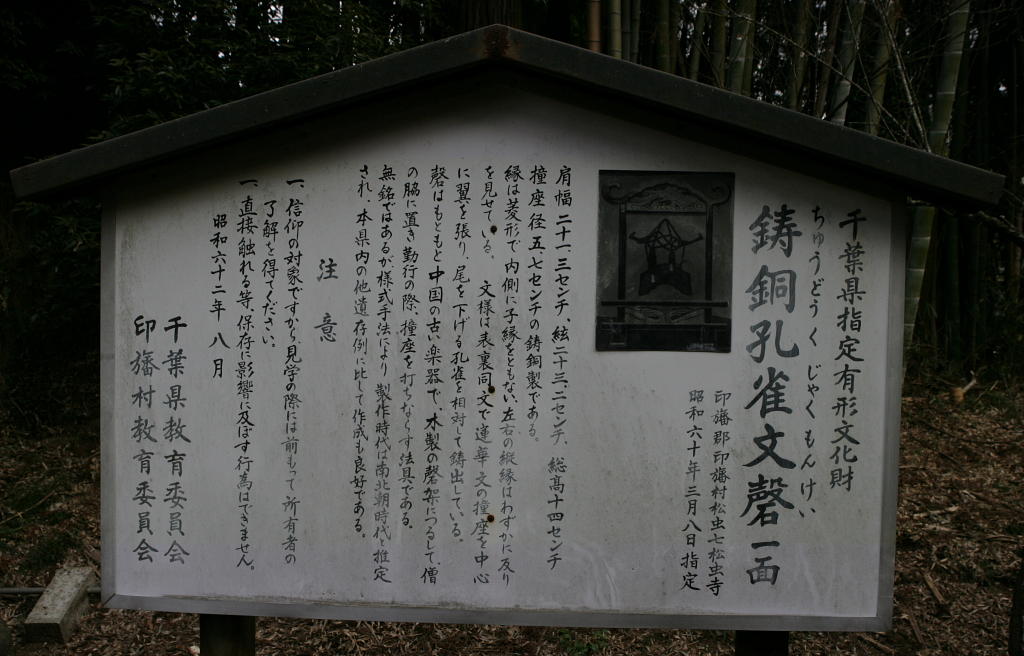 千葉県指定有形文化財
ちゅうどうくじゃくもんけい
鋳銅孔雀文磬一面
印旛郡印旛村松虫七松虫寺
昭和六十年三月八日指定
肩幅二十一、三センチ、絃二十三、二センチ、総高十四センチ
撞座径五、七センチの鋳銅製である。
縁は菱形で、内側に子縁をともない、左右の縦縁はわずかに反り
を見せている。文様は表裏同文で蓮華文の撞座を中心
に翼を張り、尾を下げる孔雀を相対して鋳出している。
磬はもともと中国の古い楽器で、木製の磬架につるして、僧
の脇に置き勤行の際、撞座を打ちならす法具である。
無銘ではあるが様式手法により製作時代は南北朝時代と推定
され、本県内の他遺存例に比して作成も良好である。
注意
一、信仰の対象ですから、見学の際には前もって所有者の
了解を得てください。
一、直接触れる等、保存に影響に及ぼす行為はできません。
昭和六十二年八月
千葉県教育委員会
印旛村教育委員会